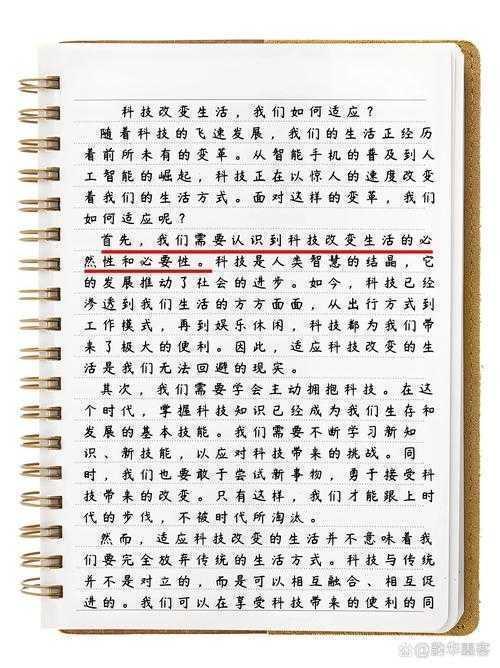 科技改变生活，我们如何适应？
随着科技的飞速发展，我们的生活正经历
着前所未有的变革。从智能手机的普及到人
工智能的崛起，科技正在以惊人的速度改变
着我们的生活方式。面对这样的变革，我们
如何适应呢？
首先，我们需要认识到科技改变生活的必
然性和必要性。科技是人类智慧的结晶，它
的发展推动了社会的进步。如今，科技已经
渗透到我们生活的方方面面，从出行方式到
工作模式，再到娱乐休闲，科技都为我们带
来了极大的便利。因此，适应科技改变的生
活是我们无法回避的现实。
其次，我们需要学会主动拥抱科技。在这
个时代，掌握科技知识已经成为我们生存和
发展的基本技能。我们需要不断学习新知
识、新技能，以应对科技带来的挑战。同
时，我们也要敢于尝试新事物，勇于接受科
技带来的改变。只有这样，我们才能跟上时
代的步伐，不被时代所淘汰。
然而，适应科技改变的生活并不意味着我
们要完全放弃传统的生活方式。科技与传统
并不是对立的，而是可以相互融合、相互促
进的。我们可以在享受科技带来的便利的同